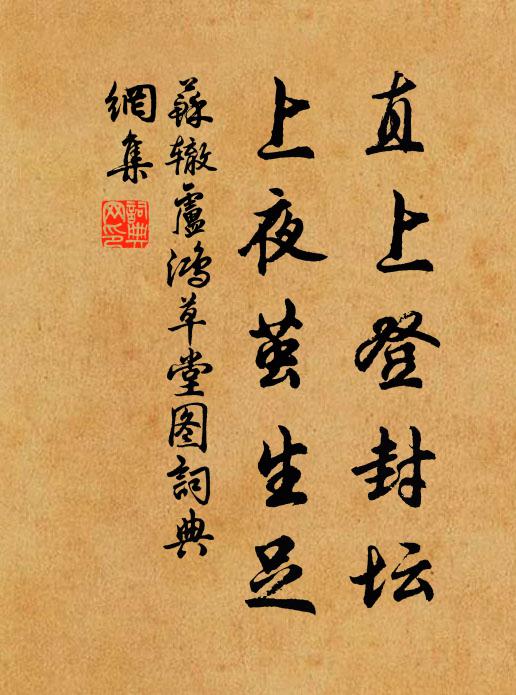 直上登封坛
上夜茧生足
苏辙卢鸿草堂图词典
網集
詞典
网印